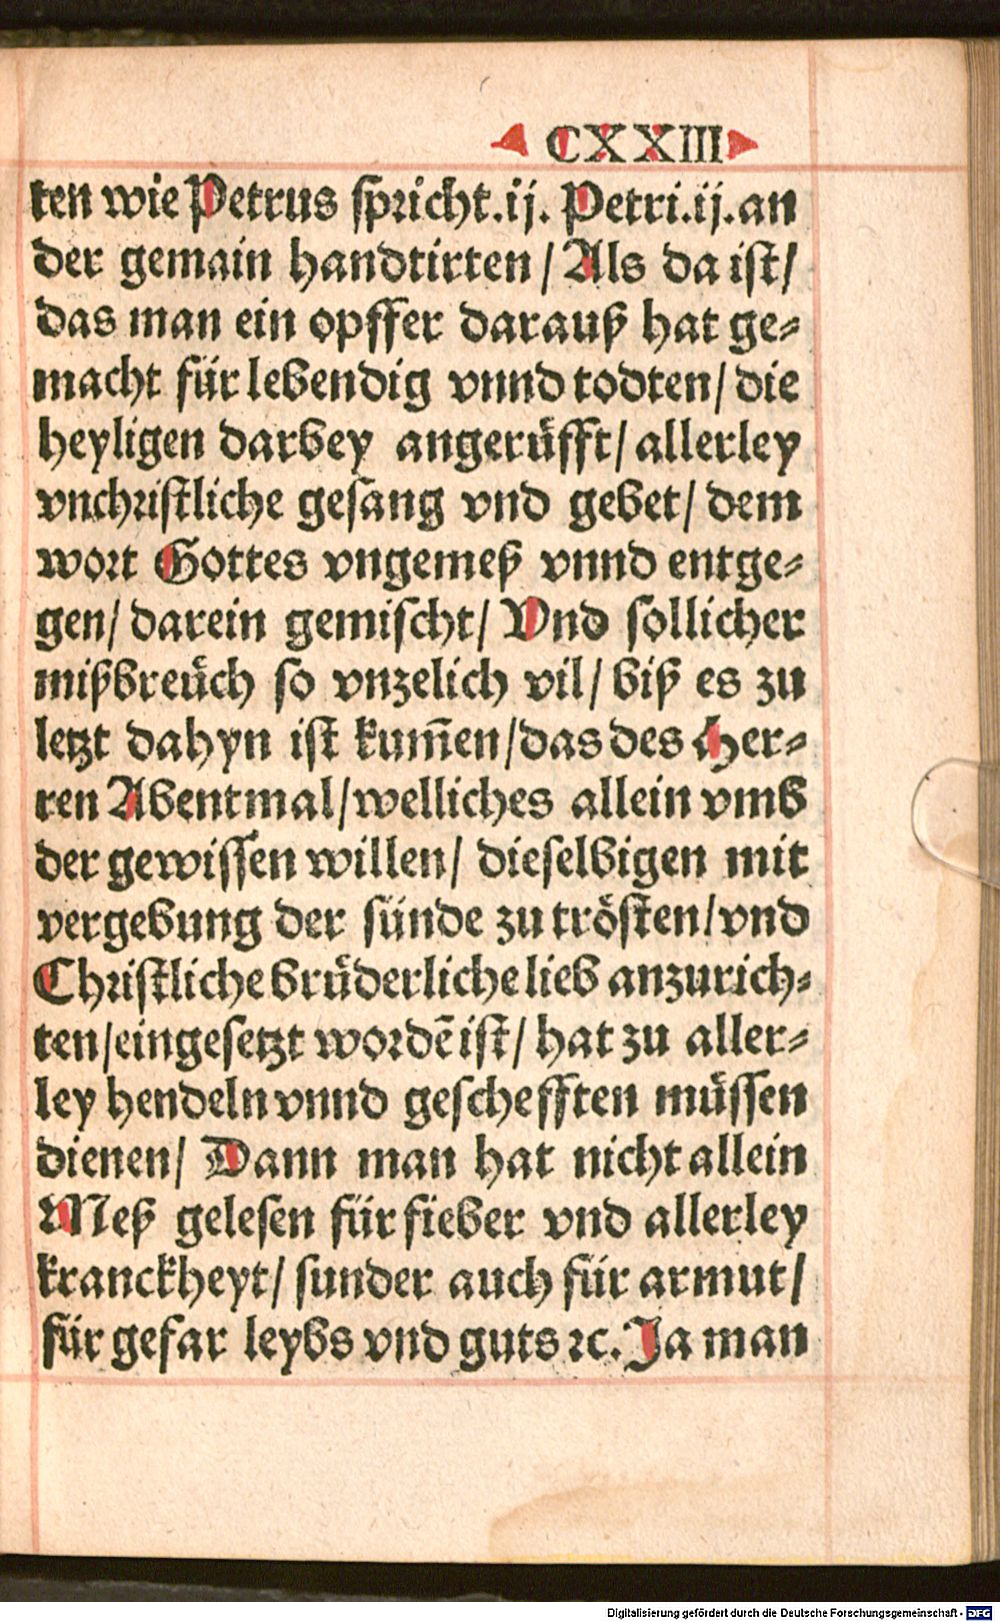 CXXIII
ten wie Petrus spricht.ij. Petri.ij.an
der gemain handtirten / Als da ist/
das man ein opffer darauß hat ge⸗
macht für lebendig vnnd todten/ die
heyligen darbey angerůfft/ allerley
vnchristliche gesang vnd gebet/ dem
wort Gottes vngemeß vnnd entge⸗
gen/ darein gemischt/ Vnd sollicher
mißbreuͤch so vnzelich vil/ biß es zu
letzt dahyn ist kum̃en/das des Her⸗
ren Abentmal/welliches allein vmb
der gewissen willen/ dieselbigen mit
vergebung der sünde zu trösten/vnd
Christliche bruͤderliche lieb anzurich⸗
ten/eingesetzt wordẽ ist/ hat zu aller⸗
ley hendeln vnnd geschefften muͤssen
dienen/ Dann man hat nicht allein
Meß gelesen für fieber vnd allerley
kranckheyt/ sunder auch für armut/
für gefar leybs vnd guts ꝛc. Ja man
Digitalisierung gefördert durch die Deutsche Forschungsgemeinschaft - DFG